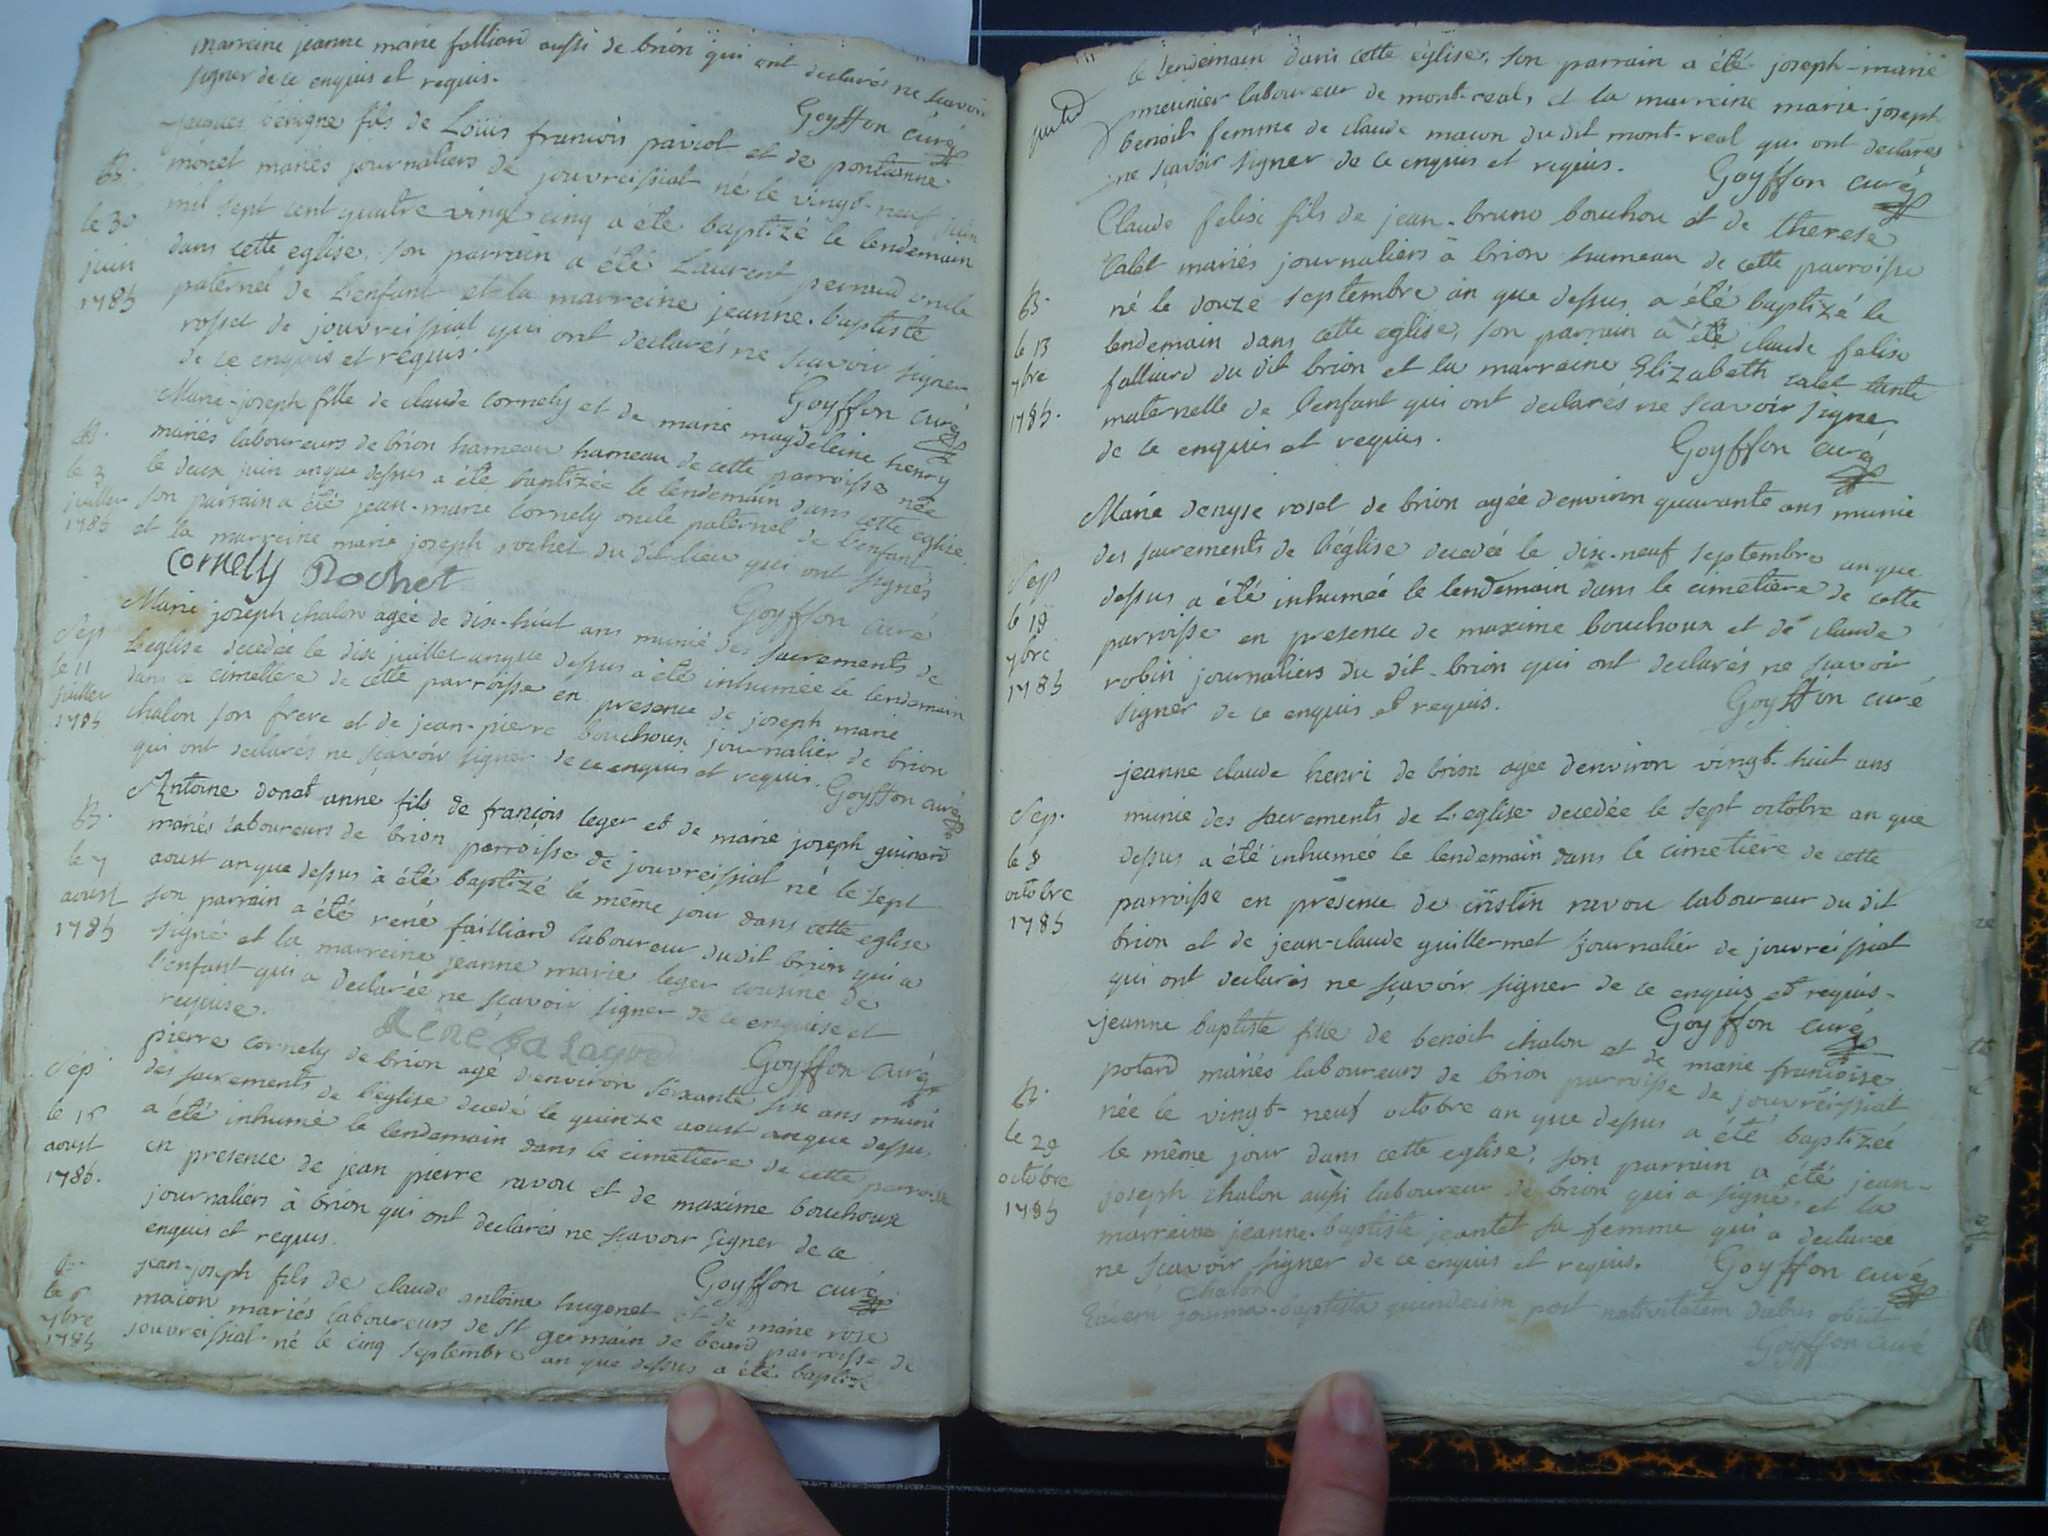 marreine jeanne marie falliard aussi de brion qui ont declarés ne scavoir
signer de ce enquis et requis.
Goyffon curé
jaques benigne fils de Loüis francois paviot et de pontianne
B.
monet mariés journaliers de jouvreissiat né le vingt-neuf juin
le 30
mil sept cent quatre vingt cinq a été baptizé le lendemain
juin
dans cette eglise, son parrain a été Laurent pernod oncle
1785
paternel de l'enfant et la marreine jeanne-baptiste
rosset de jouvreissiat qui ont declarés ne scavoir signer
de ce enquis et requis.
Goyffon curé
Marie-joseph fille de claude cornely et de marie magdeleine henry
B.
mariés laboureurs de brion hameau hameau de cette parroisse née
le 3
le deux juin an que dessus a été baptizée le lendemain dans cette eglise
juillet
son parrain a été jean-marie Cornely oncle paternel de l'enfant
1785
et la marreine marie joseph rochet du dit lieu qui ont signés
Cornely Rochet
Goyffon curé
Marie joseph chalon agée de dix-huit ans munie des sacrements de
Sep
l'eglise decedée le dix juillet an que dessus a été inhumée le lendemain
le 11
dans le cimettere de cette parroisse en presence de joseph marie
juillet
chalon son frere et de jean-pierre bouchoux journalier de brion
1785
qui ont declarés ne scavoir signer de ce enquis et requis. Goyffon curé
Antoine donat anne fils de françois leger et de marie joseph guinard
B.
mariés laboureurs de brion parroisse de jouvreissiat né le sept
le 7
aoust an que dessus a été baptizé le même jour dans cette eglise
aoust
son parrain a été rené failliard laboureur du dit brion qui a
1785
signé et la marreine jeanne marie leger cousine de
l'enfant qui a declarée ne scavoir signer de ce enquise et
requise.
Goyffon curé
pierre cornely de brion agé d'environ soixante six ans muni
Sep
des sacrements de l'eglise decedé le quinze aoust an que dessus
le 16
a été inhumé le lendemain dans le cimetiere de cette parroisse
aoust
en presence de jean pierre ravou et de maxime bouchoux
1785.
journaliers à brion qui ont declarés ne scavoir signer de ce
enquis et requis.
Goyffon curé
jean-joseph fils de claude antoine hugonet et de marie rose
B.
le 6
macon mariés laboureurs de St germain de beard parroisse de
7bre
jouvreissiat né le cinq septembre an que dessus a été baptizé
1785
le lendemain dans cette eglise, son parrain a été joseph-marie
meunier laboureur de mont-real, et la marreine marie-joseph
benoit femme de claude macon du dit mont-real qui ont declarés
ne scavoir signer de ce enquis et requis.
Goyffon curé
Claude felix fils de jean-bruno bouchou et de therese
Calet mariés journaliers à brion hameau de cette parroisse
B.
né le douze septembre an que dessus a été baptizé le
le 13
lendemain dans cette eglise, son parrain a été claude felix
7bre
falliard du dit brion et la marreine Elizabeth calet tante
1785.
maternelle de l'enfant qui ont declarés ne scavoir signer
de ce enquis et requis.
Goyffon curé
Marie denyse roset de brion agée d'environ quarante ans munie
des sacrements de l'église decedée le dix-neuf septembre an que
Sep
dessus a été inhumée le lendemain dans le cimetiere de cette
le 19
parroisse en presence de maxime bouchoux et de claude
7bre
robin journaliers du dit-brion qui ont declarés ne scavoir
1785
signer de ce enquis et requis.
Goyffon curé
jeanne claude henri de brion agée d'environ vingt-huit ans
Sep.
munie des sacrements de L'eglise decedée le sept octobre an que
le 8
dessus a été inhumée le lendemain dans le cimetiere de cette
octobre
parroisse en presence de cristin ravou laboureur du dit
1785
brion et de jean-claude guillermet journalier de jouvreissiat
qui ont declarés ne scavoir signer de ce enquis et requis-
Goyffon curé
jeanne baptiste fille de benoit chalon et de marie francoise
potard mariés laboureurs de brion parroisse de jouvreissiat
B.
née le vingt-neuf octobre an que dessus a été baptizée
le 29
le même jour dans cette eglise, son parrain a été jean-
octobre
joseph chalon aussi laboureur de brion qui a signé, et la
1785
marreine jeanne-baptiste jeantet sa femme qui a declarée
ne scavoir signer de ce enquis et requis.
Goyffon curé
Chalon
joanna-baptista quindecim post nativitatem diebus obiit
Goyffon curé